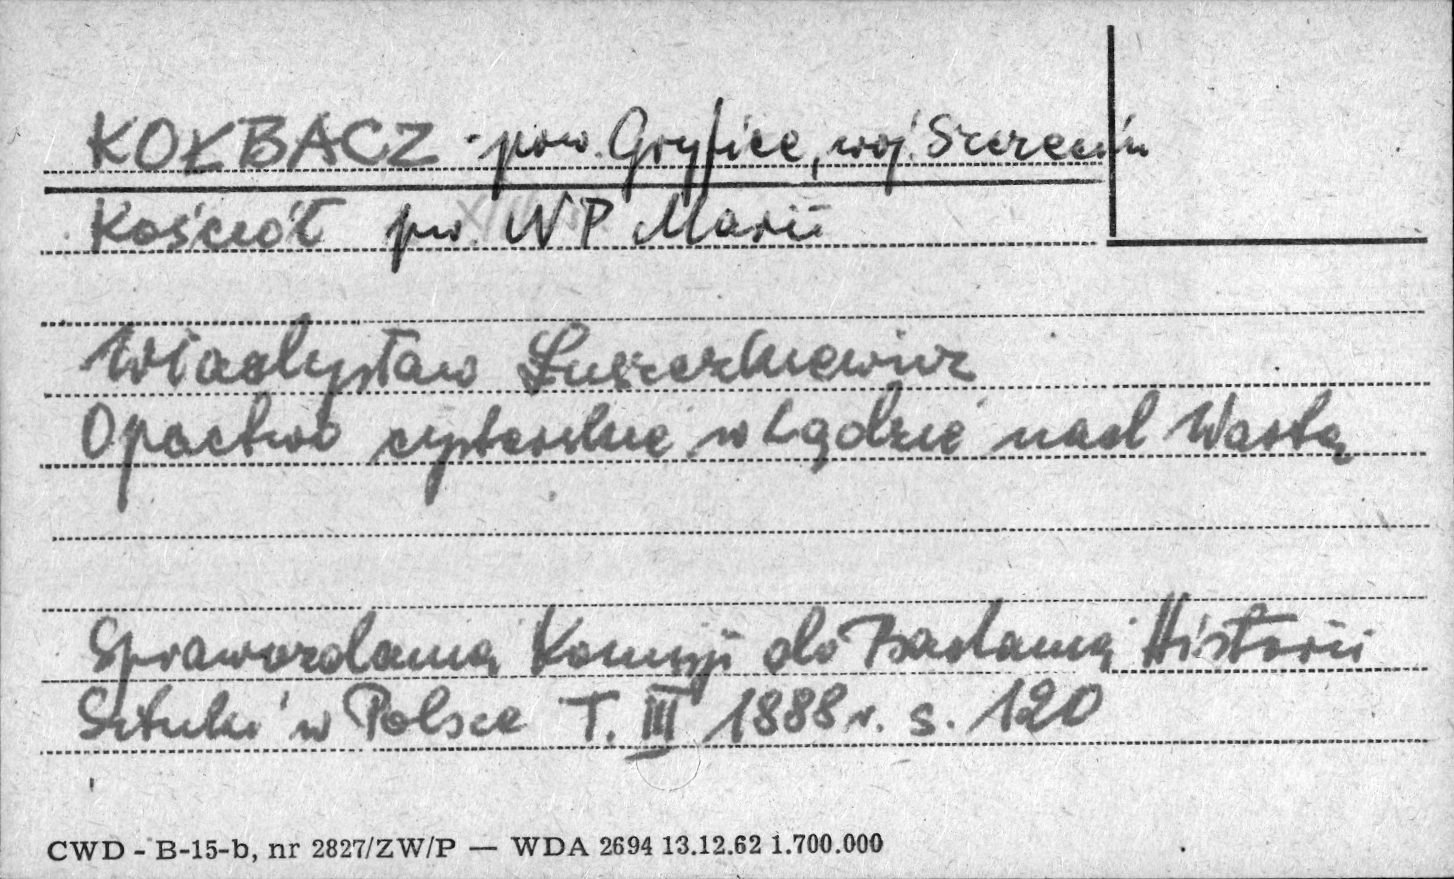 KOŁBACZ - pow. Gryfice, woj. Szczecin
Kościół pw. WP Marii
Władysław Łuszczkiewicz
Opactwo cysterskie w Lądzie nad Wartą
Sprawozdania Komisji do Badania Historii
Sztuki w Polsce T. III 1888 r. s. 120
CWD - B-15-b, nr 2827/ZW/P — WDA 2694 13.12.62 1.700.000